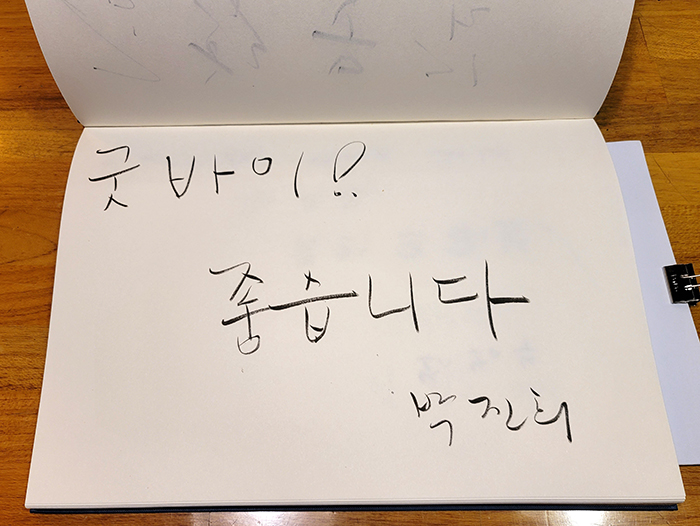 굿바이?
좋습니다
박진희